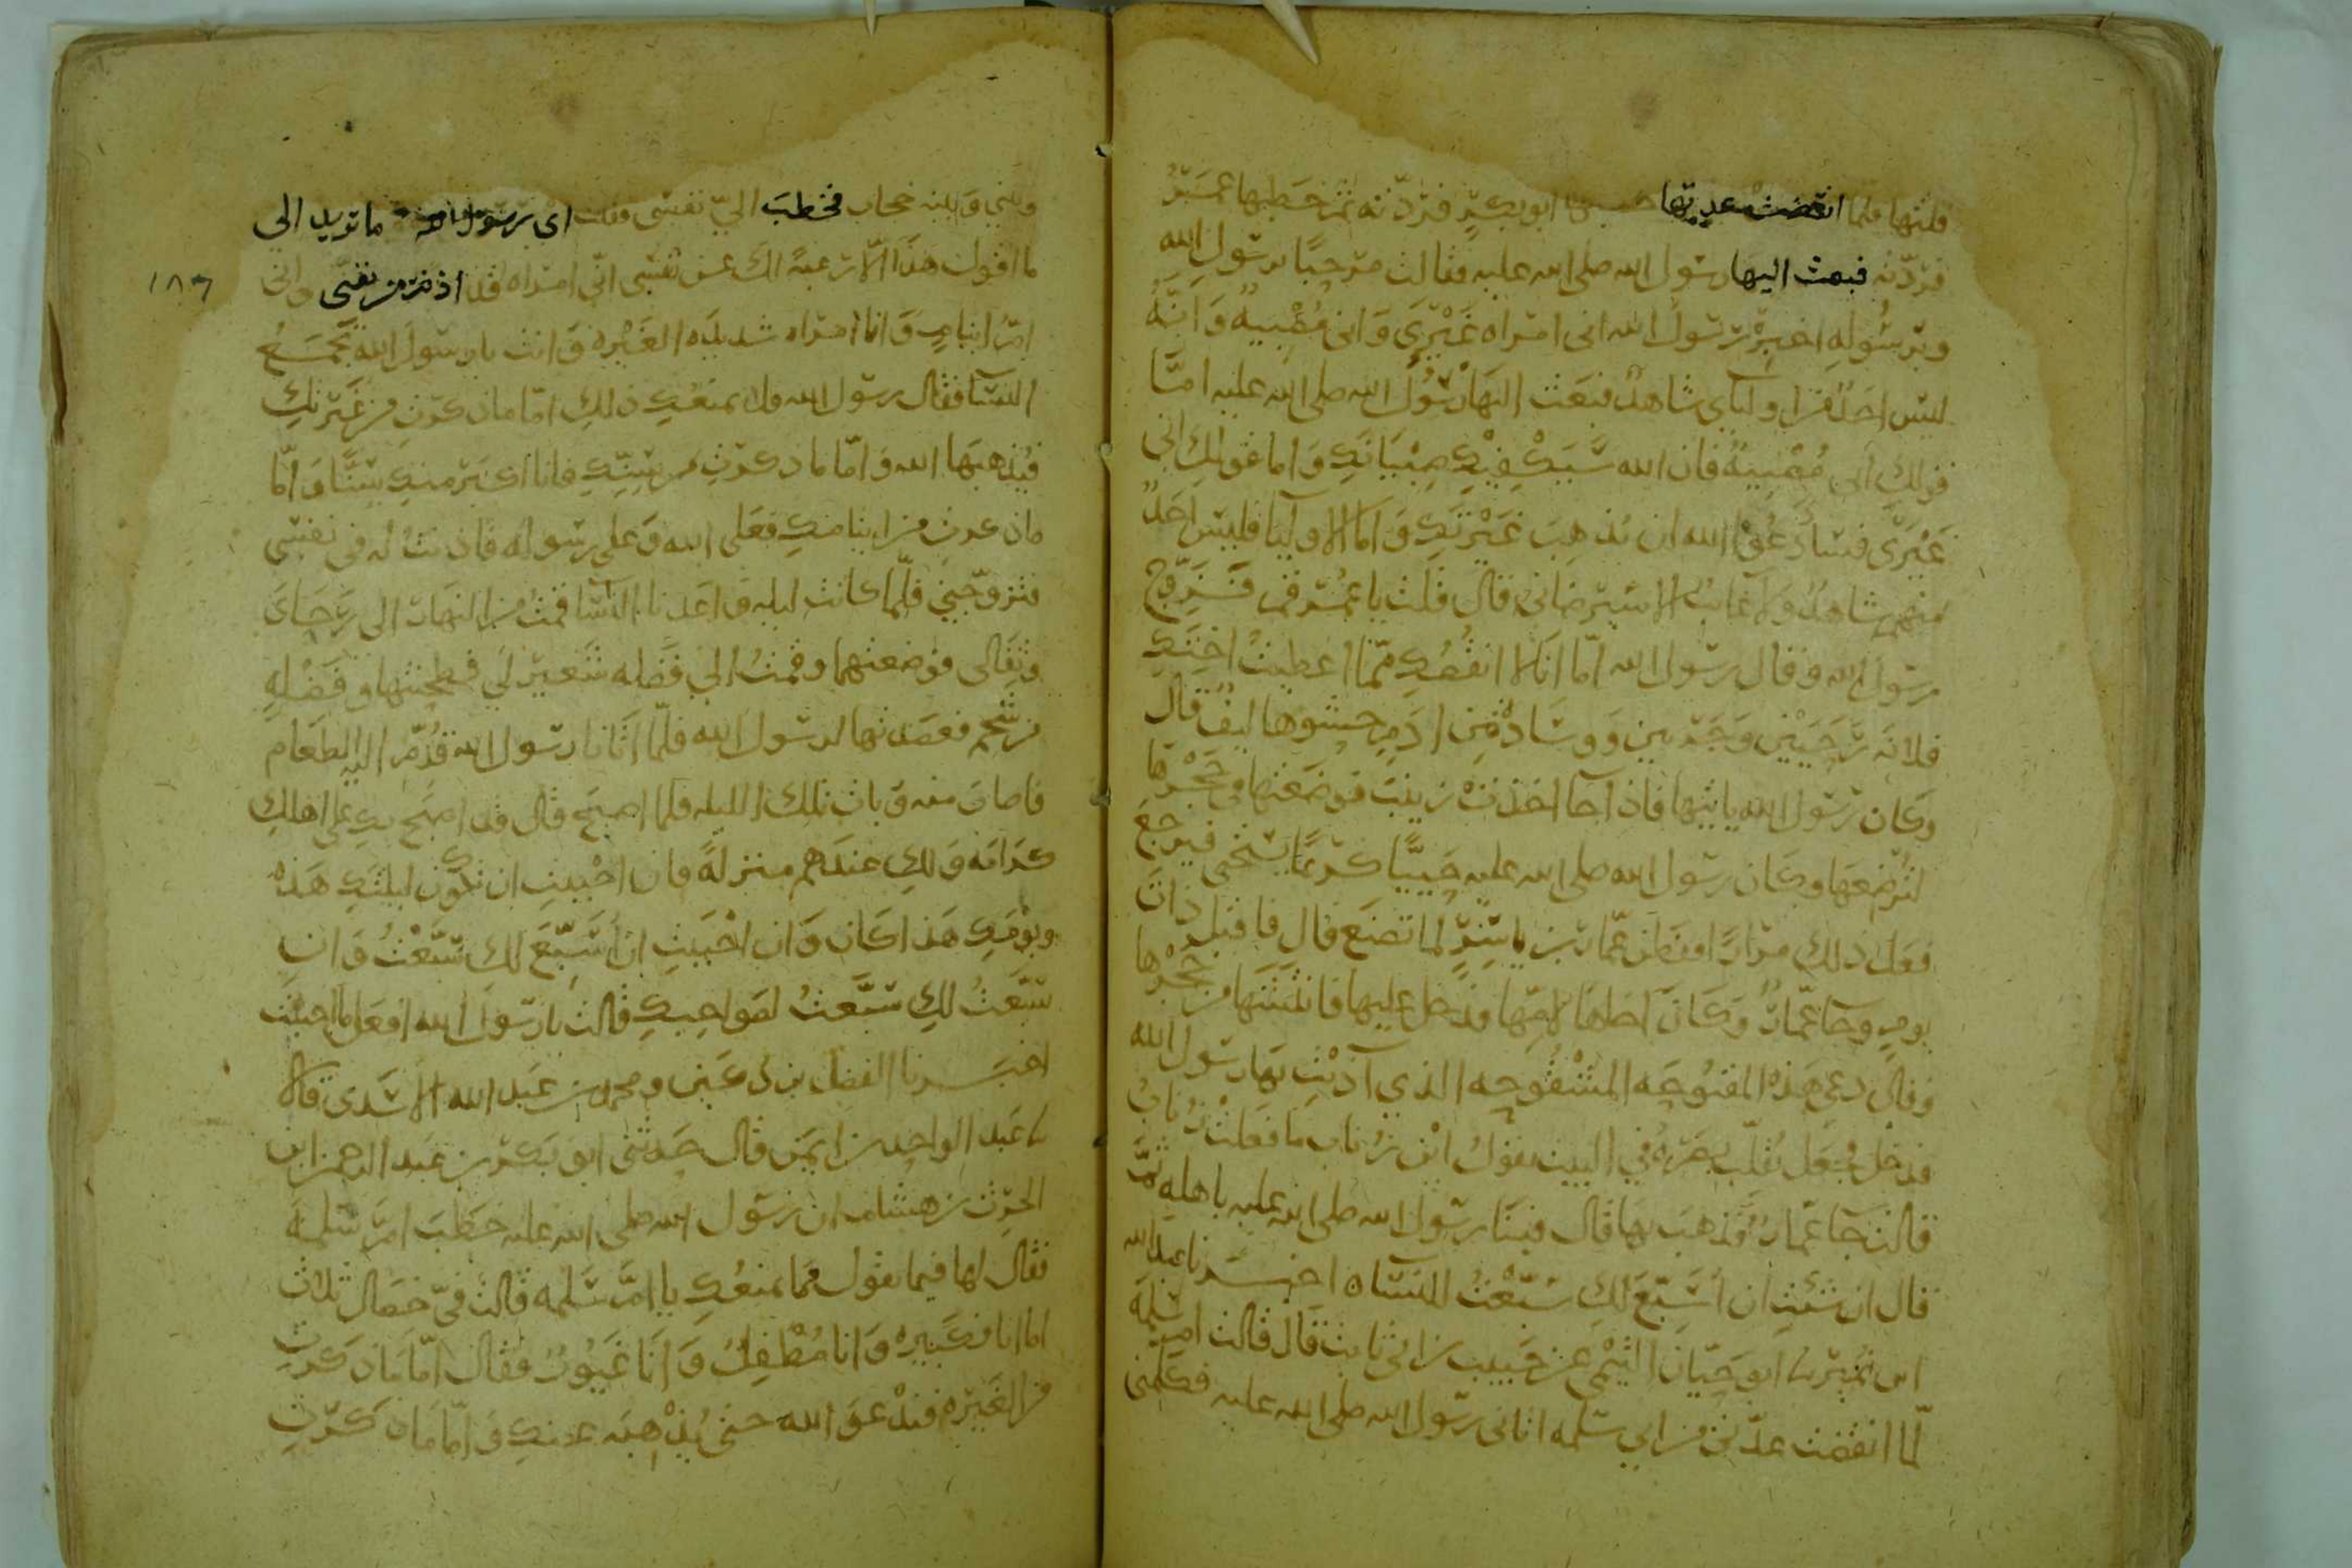 قلتها فلما انقضت عدتها خطبها ابو بكر فردته ثم خطبها عمر
فردته فبعث اليها رسول الله صلى الله عليه فقالت مرحبا برسول الله
وبرسوله اخبر رسول الله انى امراه غيرى وانى مصبيه وانه
ليس احد من اوليآى شاهد فبعث اليها رسول الله صلى الله عليه اما
قولك انى مصبيه فان الله سيكفيك صبيانك واما قولك انى
غيرى فسادعو الله ان يذهب غيرتك واما الاوليا فليس احد
منهم شاهد ولا غايب الا سيرضانى قال قلت يا عمر قم فزوج
رسول الله وقال رسول الله اما انى لا انقصك مما اعطيت اختك
فلانه رحيين وجرتين ووسادة من ادم حشوها ليف قال
وكان رسول الله ياتيها فاذا جآ اخذت زينب فوضعتها في حجرها
لترضعها وكان رسول الله صلى الله عليه حييا كريما يستحى فيرجع
فعل ذلك مرارا ففطن عمار بن ياسر لما تصنع قال فاقبل ذات
يوم وجا عمار وكان اخاها لامها فدخل عليها فانتشطها من حجرها
وقال دعى هذه المقبوحه المشقوحه الذي آذيت بها رسول الله
فدخل فجعل يقلب بصره في البيت يقول اين زناب ما فعلت زناب
قالت جا عمار فذهب بها قال فبنا رسول الله صلى الله عليه باهله ثم
قال ان شئت ان اسبع لك سبعت للنساه اخبرنا عبد الله
ابن نمير نا ابو حيان التيمى عن حبيب بن ابى ثابت قال قالت ام سلمه
لما انقضت عدتى من ابي سلمه اتانى رسول الله صلى الله عليه فكلمنى
وبينى وبينه حجاب فخطب الي نفسى فقلت اى رسول الله ما تريد الي
ما اقول هذا الا رغبة لك عن نفسى انى امراه قد ادبر من سنى وانى
ام ايتام وانا امراه شديده الغيره وانت يا رسول الله تجمع
النسا فقال رسول الله فلا يمنعك ذلك اما ما ذكرت من غيرتك
فيذهبها الله واما ما ذكرت من سنك فانا اكبر منك سنا واما
ما ذكرت من ايتامك فعلى الله وعلى رسوله فاذنت له في نفسى
فتزوجنى فلما كانت ليله واعدنا البنا قمت من النهار الى رحاى
وثفالى فوضعتهما وقمت الى فضله شعير لي فطحنتها وفضله
من شحم فعصدتها لرسول الله فلما اتانا رسول الله قدم اليه الطعام
فاصاب منه وبات تلك الليله فلما اصبح قال قد اصبح بك على اهلك
كرامه ولك عندهم منزلة فان احببت ان تكون ليلتك هذه
ويومك هذا كان وان احببت ان اسبع لك سبعت وان
سبعت لك سبعت لصواحبك قالت يا رسول الله افعل ما احببت
اخبرنا الفضل بن دكين ومحمد بن عبد الله الاسدى قالا
نا عبد الواحد بن ايمن قال حدثنى ابو بكر بن عبد الرحمن ابن
الحرث بن هشام ان رسول الله صلى الله عليه خطب ام سلمه
فقال لها فيما يقول فما يمنعك يا ام سلمه قالت فيّ خصال ثلاث
اما انا فكبيره وانا مطفل وانا غيور فقال اما ما ذكرت
من الغيره فندعو الله حتى يذهبه عنك واما ما ذكرت
١٨٦